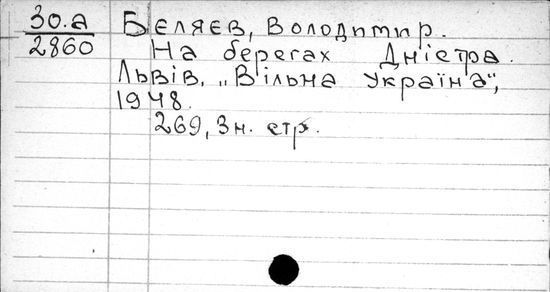 30.а
2860
Бєляєв, Володимир.
На берегах Дністра.
Львів, „Вільна Україна",
1948.
269, 3 н. стр.